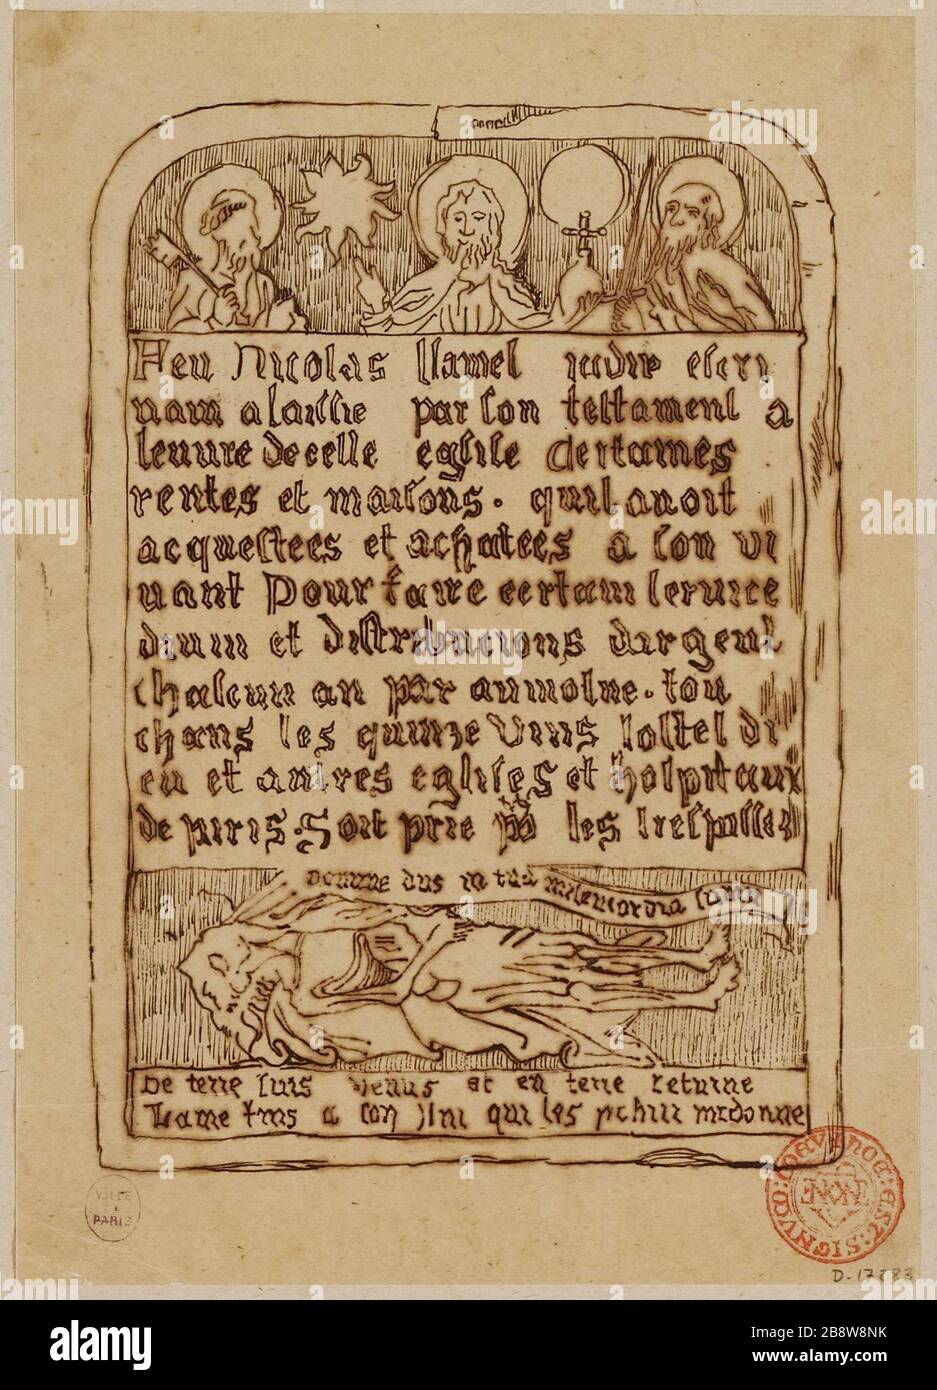 Feu Nicolas flamel jadis escri
uain a laissie par son testament a
leuure de celle eglise certaines
rentes et maisons . quil auoit
acquestees et achatees a son vi
uant pour faire certain seruice
diuin et distribucions dargent
chascun an par aumosne . tou
chans les quinze vins lostel di
eu et autres eglises et hospitaux
de paris . Soit prie po les trespasses
Domine deus in tua misericordia
De terre suis venus et en terre retorne
Lame a toy qui les
VILLE
PARIS
D-17883
alamy
Image ID: 2B8W8NK
www.alamy.com